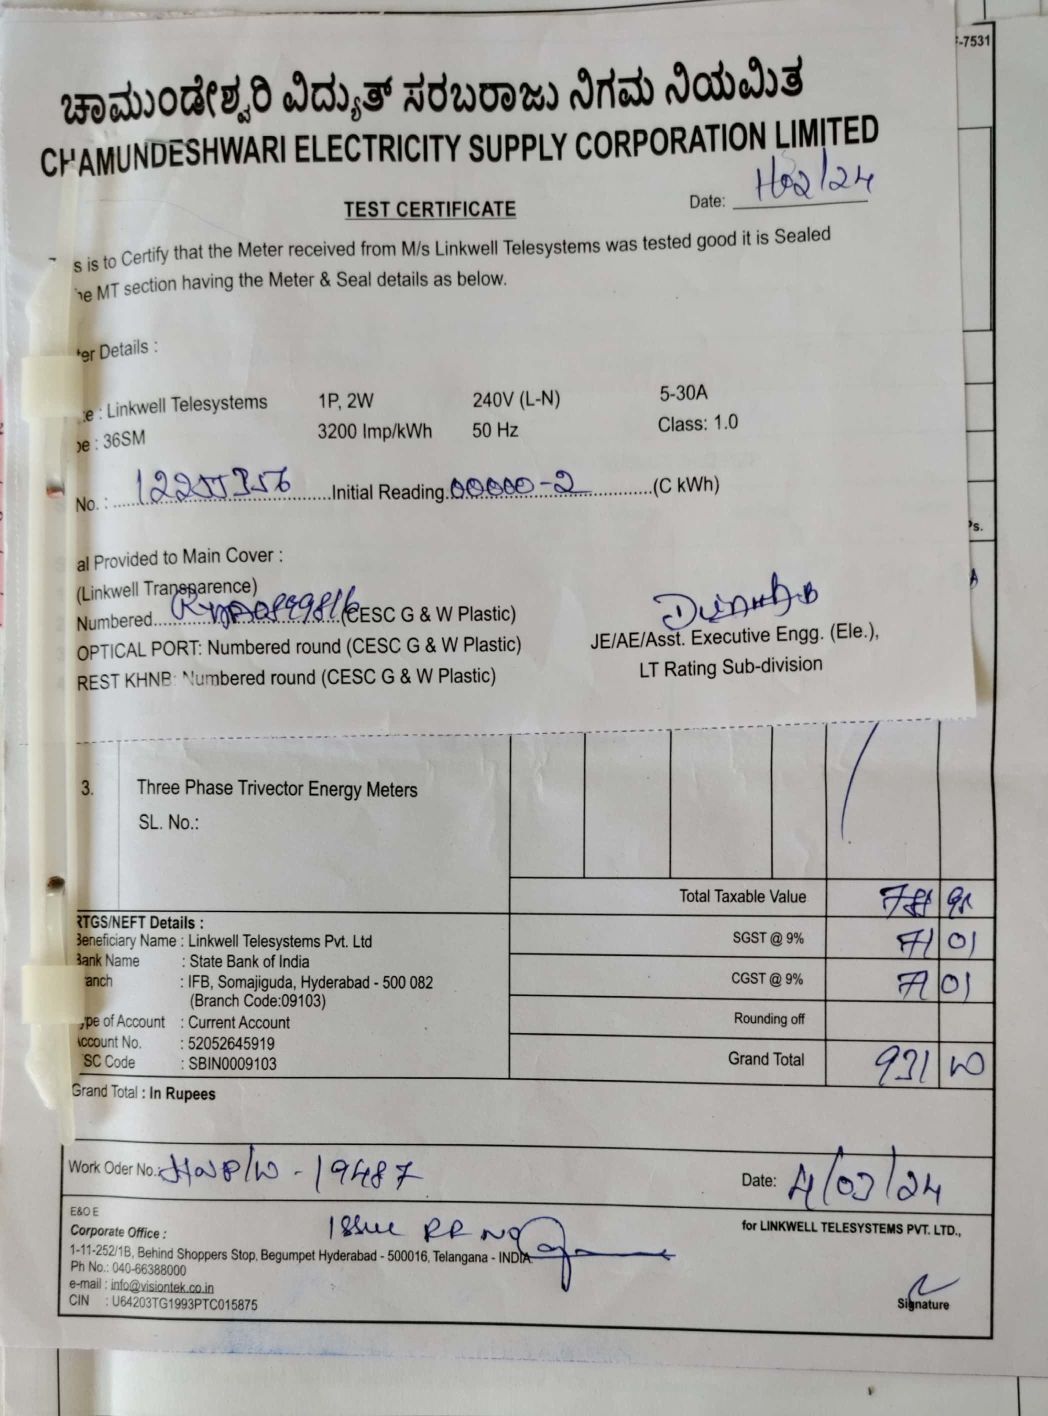 -7531
ಚಾಮುಂಡೇಶ್ವರಿ ವಿದ್ಯುತ್ ಸರಬರಾಜು ನಿಗಮ ನಿಯಮಿತ
CHAMUNDESHWARI ELECTRICITY SUPPLY CORPORATION LIMITED
TEST CERTIFICATE
Date:
s is to Certify that the Meter received from M/s Linkwell Telesystems was tested good it is Sealed
he MT section having the Meter & Seal details as below.
ter Details :
e : Linkwell Telesystems 1P, 2W 240V (L-N) 5-30A
pe : 36SM 3200 Imp/kWh 50 Hz Class: 1.0
No. : Initial Reading 00000-2 (C kWh)
Ps.
al Provided to Main Cover :
(Linkwell Transparence)
Numbered (CESC G & W Plastic)
OPTICAL PORT: Numbered round (CESC G & W Plastic)
REST KHNB: Numbered round (CESC G & W Plastic)
JE/AE/Asst. Executive Engg. (Ele.),
LT Rating Sub-division
3. Three Phase Trivector Energy Meters
SL. No.:
Total Taxable Value
SGST @ 9% 71 01
CGST @ 9% 71 01
Rounding off
Grand Total 931
RTGS/NEFT Details :
Beneficiary Name : Linkwell Telesystems Pvt. Ltd
Bank Name : State Bank of India
anch : IFB, Somajiguda, Hyderabad - 500 082
(Branch Code:09103)
ype of Account : Current Account
Account No. : 52052645919
SC Code : SBIN0009103
Grand Total : In Rupees
Work Oder No.: - 19487
Date: 4/03/24
E&O E
Corporate Office :
1-11-252/1B, Behind Shoppers Stop, Begumpet Hyderabad - 500016, Telangana - INDIA
Ph No.: 040-66388000
e-mail : info@visiontek.co.in
CIN : U64203TG1993PTC015875
Issue RR No
for LINKWELL TELESYSTEMS PVT. LTD.,
Signature